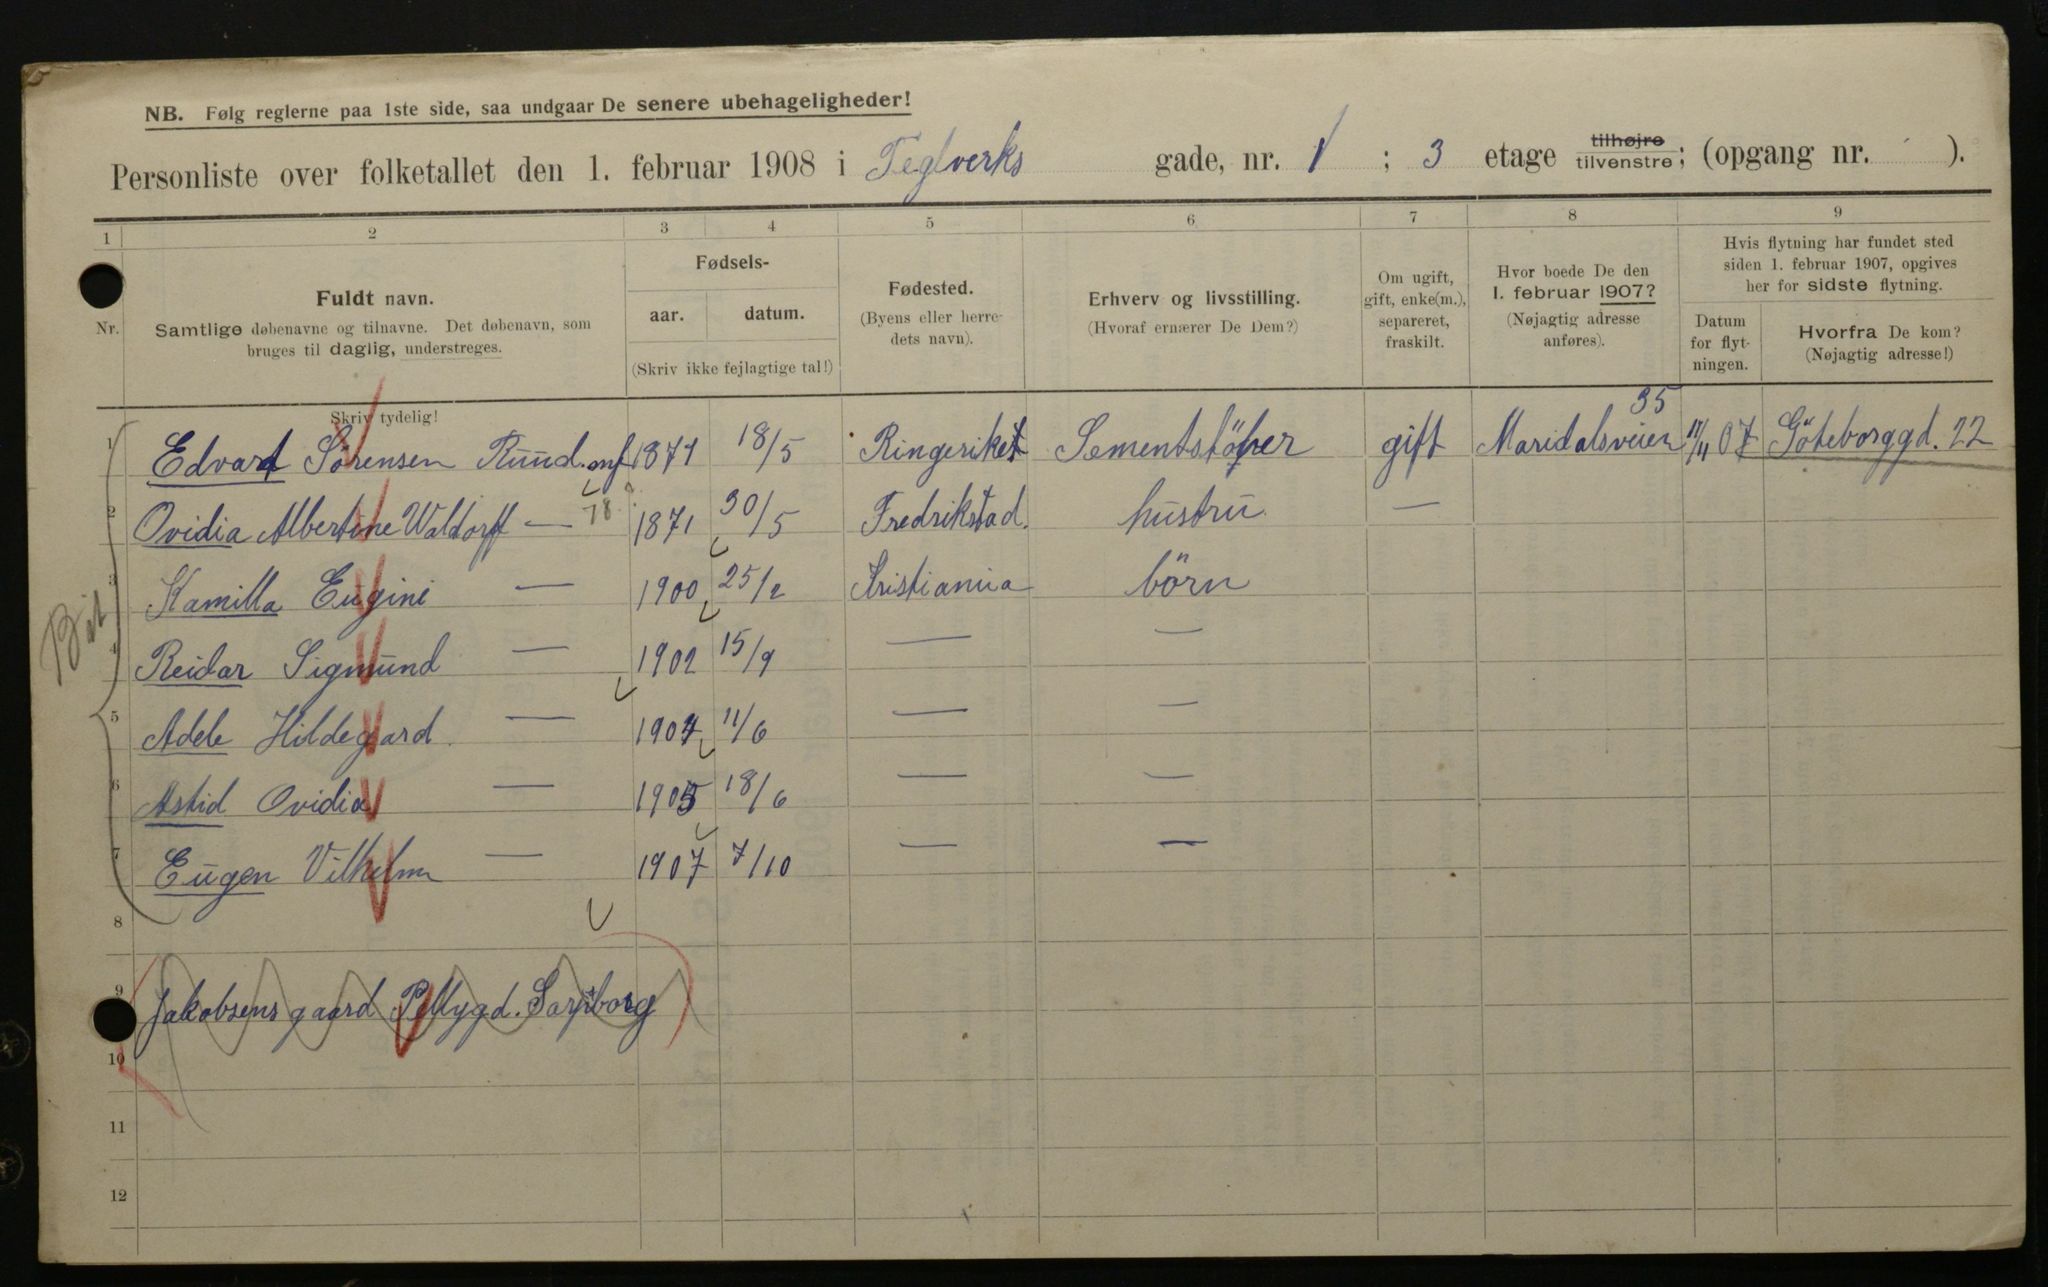 NB. Følg reglerne paa 1ste side, saa undgaar De senere ubehageligheder!
Personliste over folketallet den 1. februar 1908 i Teglverks gade, nr. 1 ; 3 etage tilhøjre tilvenstre; (opgang nr. ).
1 2 3 4 5 6 7 8 9
Nr.
Fuldt navn.
Samtlige døbenavne og tilnavne. Det døbenavn, som
bruges til daglig, understreges.
Skriv tydelig!
Fødsels-
aar. datum.
(Skriv ikke fejlagtige tal!)
Fødested.
(Byens eller herre-
dets navn).
Erhverv og livsstilling.
(Hvoraf ernærer De Dem?)
Om ugift,
gift, enke(m.),
separeret,
fraskilt.
Hvor boede De den
1. februar 1907?
(Nøjagtig adresse
anføres).
Hvis flytning har fundet sted
siden 1. februar 1907, opgives
her for sidste flytning.
Datum
for flyt-
ningen.
Hvorfra De kom?
(Nøjagtig adresse!)
35
1 Edvard Sørensen Ruud. 1871 18/5 Ringeriket Sementstöper gift Maridalsveien 11/11 07 Göteborggd. 22
78
2 Ovidia Albertine Waldorff — 1871 30/5 Fredrikstad. hustru —
3 Kamilla Eugine — 1900 25/2 Kristiania börn
4 Reidar Sigmund — 1902 15/9 — —
5 Adele Hildegard. — 1904 11/6 — —
6 Astid Ovidia — 1905 18/6 — —
7 Eugen Vilhelm — 1907 7/10 — —
8
9 Jakobsens gaard Pellygd. Sarpsborg
10
11
12